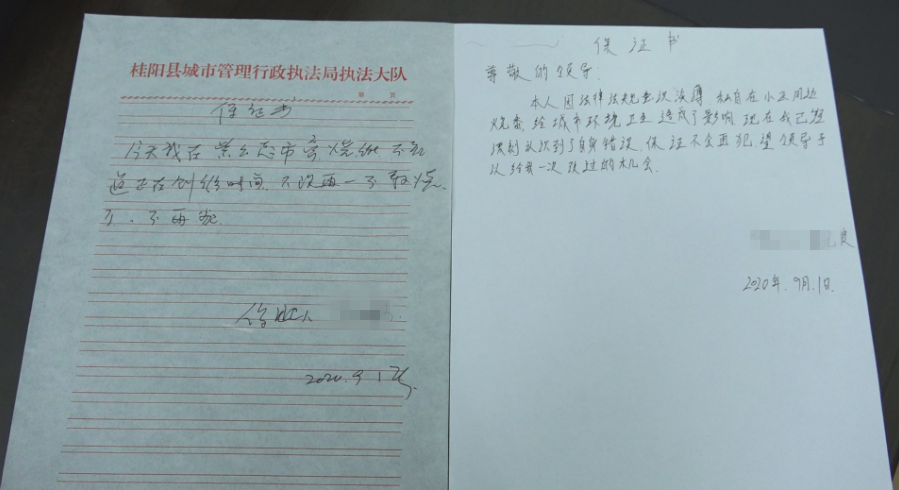 桂阳县城市管理行政执法局执法大队
第 页
保证书
今天我在
道正在创 时间, 下次再一不敢烧
了. 不再
保证人
2020.9.1号
保证书
尊敬的领导:
本人因法律法规意识淡薄 私自在小区周边
烧香, 给城市环境卫生造成了影响 现在我已
认识到了自身错误, 保证不会再犯 望领导予
以给我一次改过的机会.
2020年.9月.1日